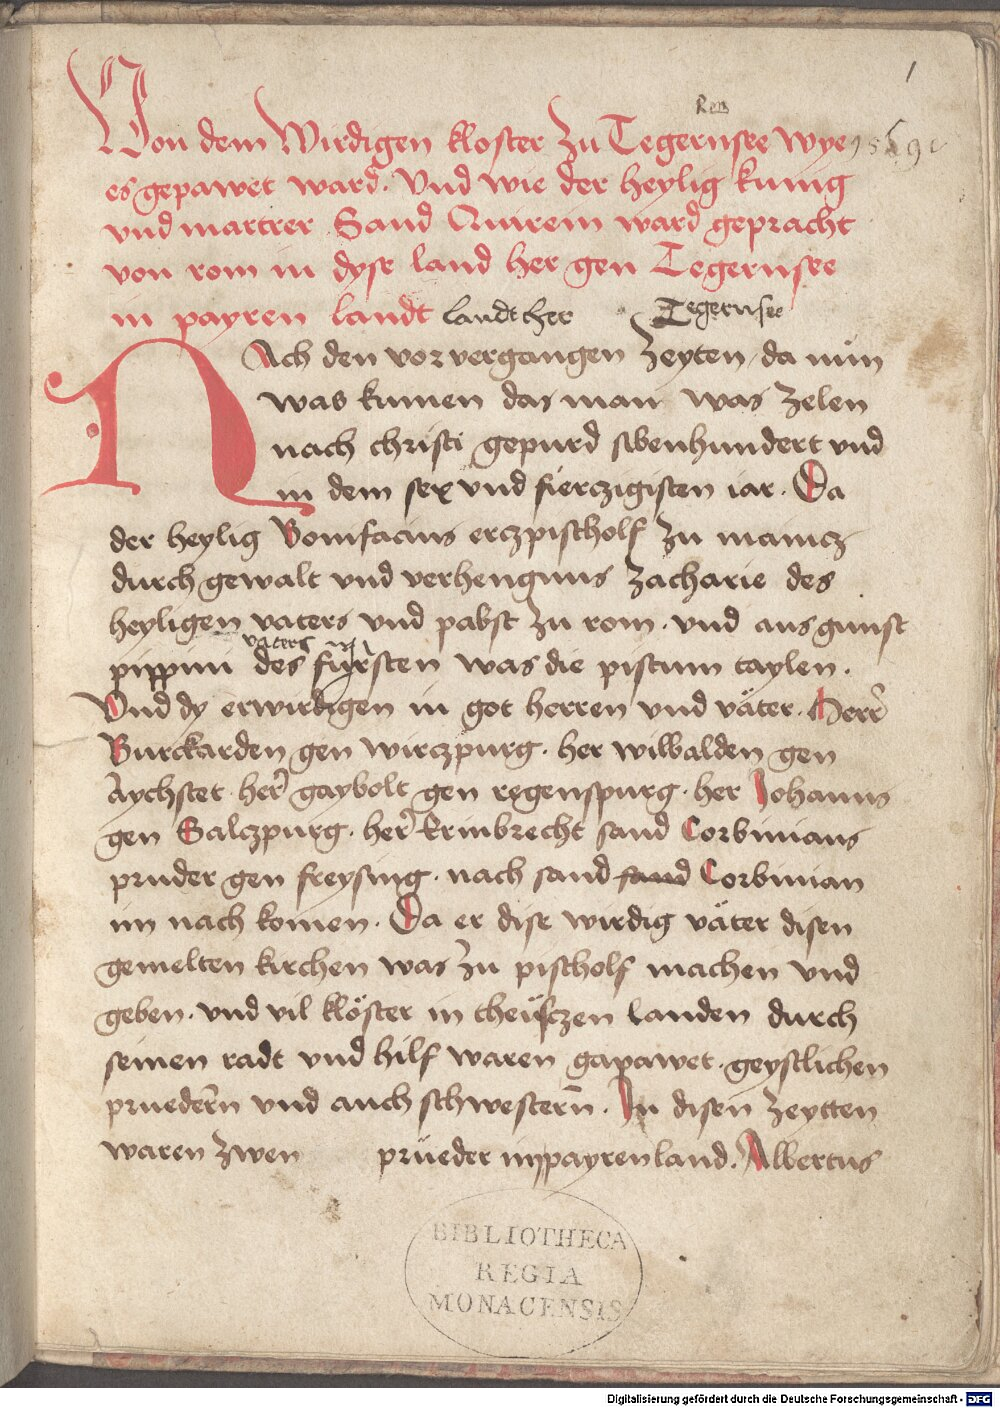 1
Von dem Wirdigen kloster zu Tegernsee wye
es gepawet ward. Vnd wie der heylig kunig
vnd martrer Sand Quirein ward gepracht
von rom in dyse land her gen Tegernsee
in payren landt landt her Tegernsee
NAch den vor vergangen zeyten da nůn
was kumen das man was zelen
nach christi gepurd sibenhundert vnd
in dem sex vnd fierczigisten iar. Da
der heylig Bonifacius erczpischolf zu maincz
durch gewalt vnd verhengnus zacharie des
heyligen vaters vnd pabst zu rom. vnd aus gunst
vaters
pippini des fursten was die pistum taylen.
Vnd dy erwirdigen in got herren vnd väter. Herr
Burckarden gen wirczpurg. her wilbalden gen
Aychstet her gaybolt gen regenspurg. her Johanns
gen Salczpurg. her Erinbrecht sand Corbinians
pruder gen freysing. nach sand sand Corbinian
im nach komen. Da er dise wirdig väter disen
gemelten kirchen was zu pischolf machen vnd
geben. vnd vil klöster in theüsczen landen durch
seinen radt vnd hilf waren gapawet. geystlichen
pruedern vnd auch schwestern. In disen zeytten
waren zwen prüeder in payren land. Albertus
BIBLIOTHECA
REGIA
MONACENSIS
Digitalisierung gefördert durch die Deutsche Forschungsgemeinschaft - DFG